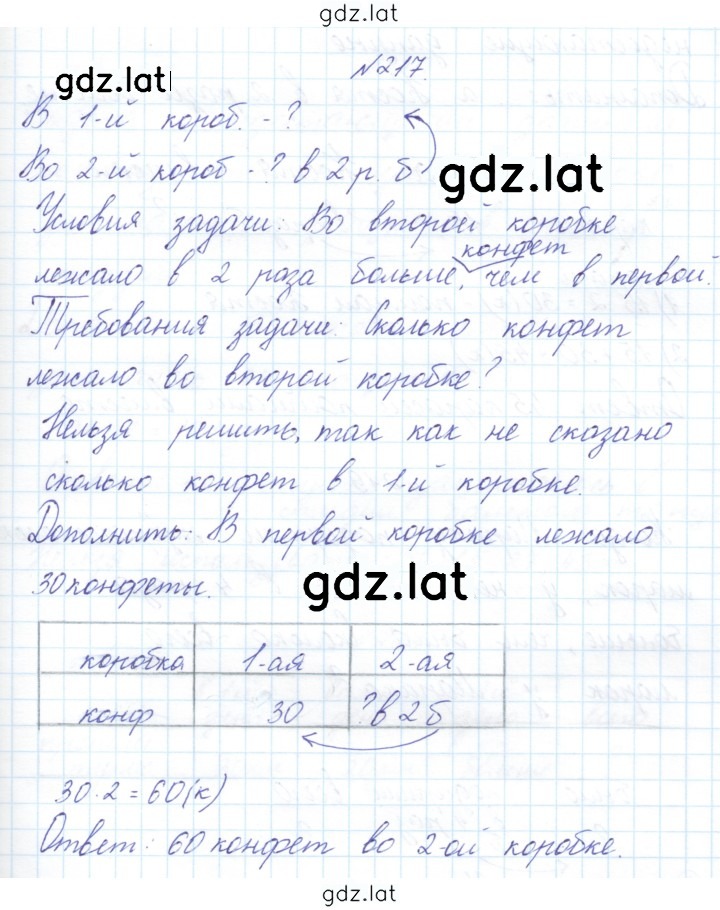 gdz.lat
№217.
gdz.lat
В 1-й короб. - ?
Во 2-й короб - ? в 2 р. б
gdz.lat
Условия задачи: Во второй коробке
конфет
лежало в 2 раза больше, чем в первой.
Требования задачи: Сколько конфет
лежало во второй коробке?
Нельзя решить, так как не сказано
сколько конфет в 1-й коробке.
Дополнить: В первой коробке лежало
30 конфеты.
gdz.lat
коробка 1-ая 2-ая
конф 30 ? в 2 б
30·2=60(к)
Ответ: 60 конфет во 2-ой коробке.
gdz.lat